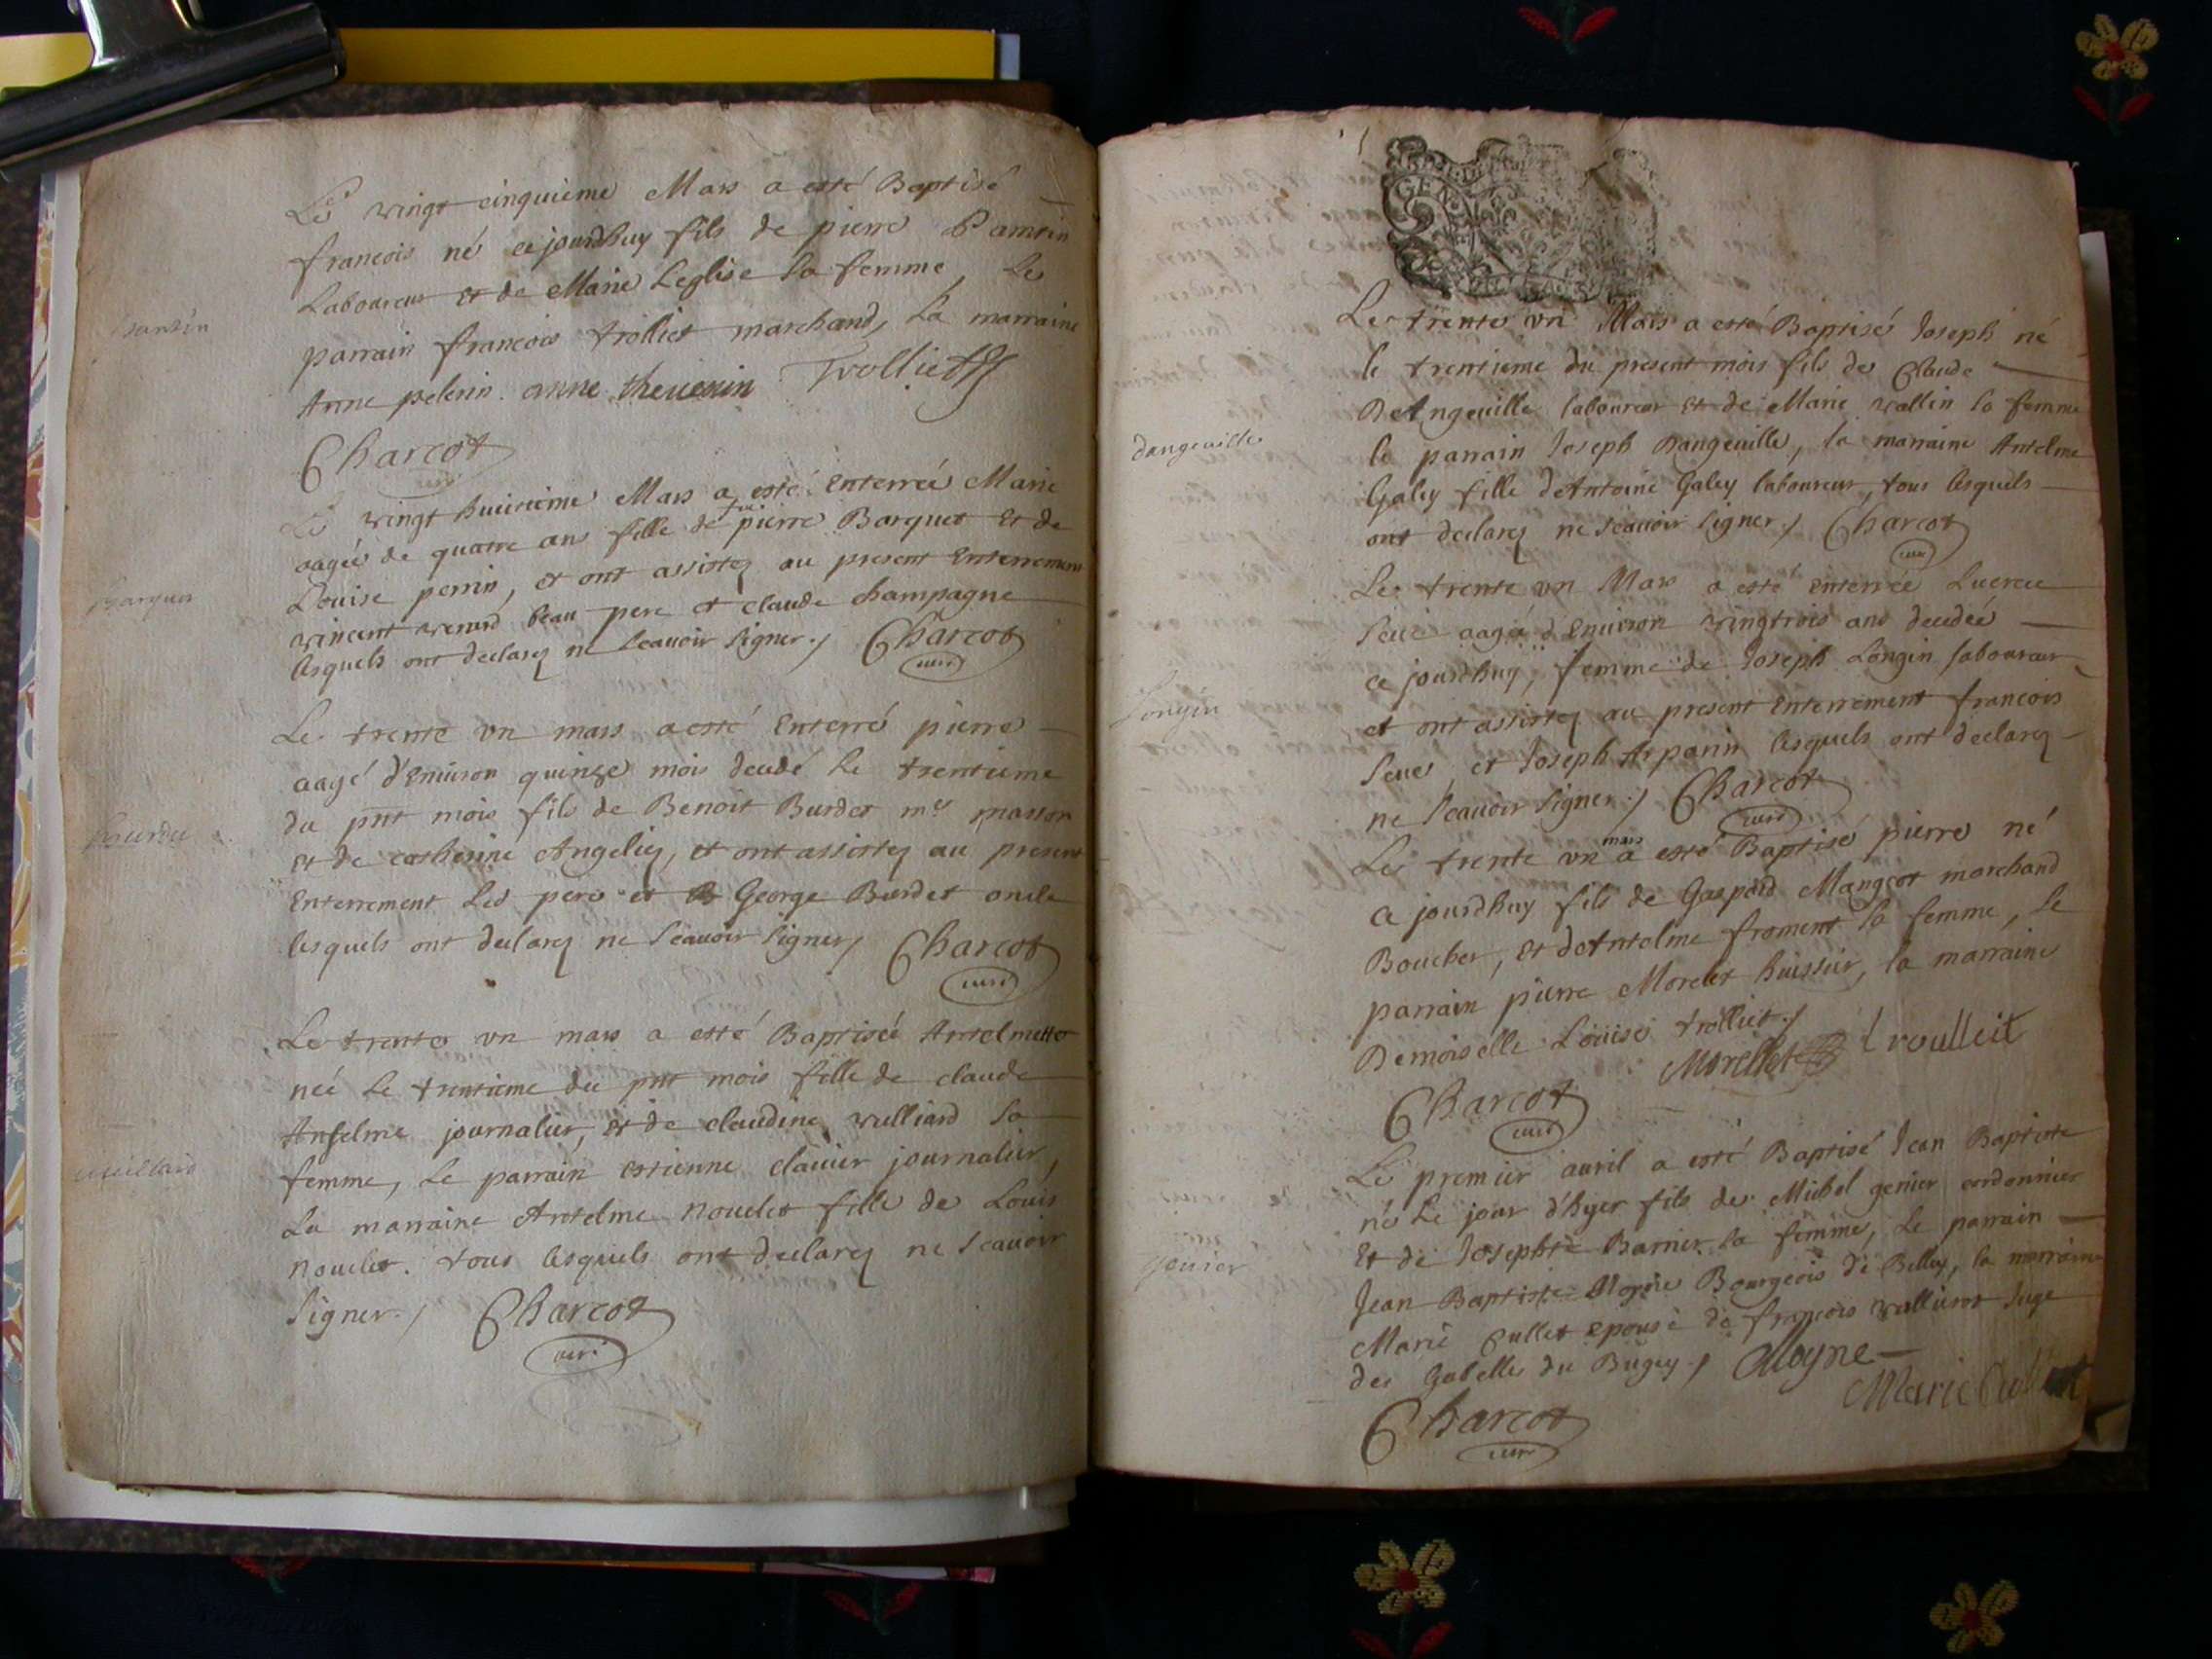 Le vingt cinquieme Mars a esté Baptisé
francois né ce jourdhuy fils de pierre
Laboureur et de Marie Leglise sa femme, Le
parrain francois trolliet marchand, La marraine
Anne pelerin. anne thevenin Trolliet
Charcot
curé
Le vingt huitieme Mars a esté Enterrée Marie
aagée de quatre ans fille de feu pierre Barquet et de
Louise perrin, et ont assistez au present Enterrement
vincent beau pere et claude champagne
lesquels ont declarez ne scavoir signer./ Charcot
curé
Barquet
Le trente un mars a esté Enterré pierre
aagé d'Environ quinze mois decedé le trentieme
du pnt mois fils de Benoit Burdet me masson
et de catherine Angeliey, et ont assistez au present
Enterrement Led pere et George Burdet oncle
lesquels ont declarez ne scavoir signer/ Charcot
curé
Le trente un mars a esté Baptisée Antelmette
née Le trentieme du pnt mois fille de claude
Anselme journalier, et de claudine vulliard sa
femme, Le parrain estienne clavier journalier,
La marraine Antelme Nouclet fille de Louis
Nouclet. tous lesquels ont declarez ne scavoir
signer./ Charcot
curé
Le trente un Mars a esté Baptisé Joseph né
le trentieme du present mois fils de Claude
DeAngeville laboureur et de Marie vallin sa femme
le parrain Joseph Dangeville, la marraine Antelme
Galey fille d'Antoine Galey laboureur, tous lesquels
ont declarez ne scavoir signer./ Charcot
curé
dangeville
Le trente un Mars a esté enterrée Lucrece
Seve aagée d'Environ vingtrois ans decedée
ce jourdhuy, femme de Joseph Longin laboureur
et ont assistez au present Enterrement francois
Seve, et Joseph Arparin lesquels ont declarez
ne scavoir signer./ Charcot
curé
Longin
Le trente un mars a esté Baptisé pierre né
ce jourdhuy fils de Gaspard Mangeot marchand
Boucher, et d'Antelme froment sa femme, le
parrain pierre Morelet huissier, la marraine
Demoiselle Louise trolliet./
Morellet troulleit
Charcot
curé
Le premier avril a esté Baptisé Jean Baptiste
né le jour d'hyer fils de Michel genier cordonnier
Et de Josephte Barnier sa femme, Le parrain
Jean Baptiste Moyne Bourgeois de Belley, la marraine
Marie Cullet epouse de francois vullierot Juge
des Gabelles du Bugey./ Moyne
Marie
Charcot
curé
genier